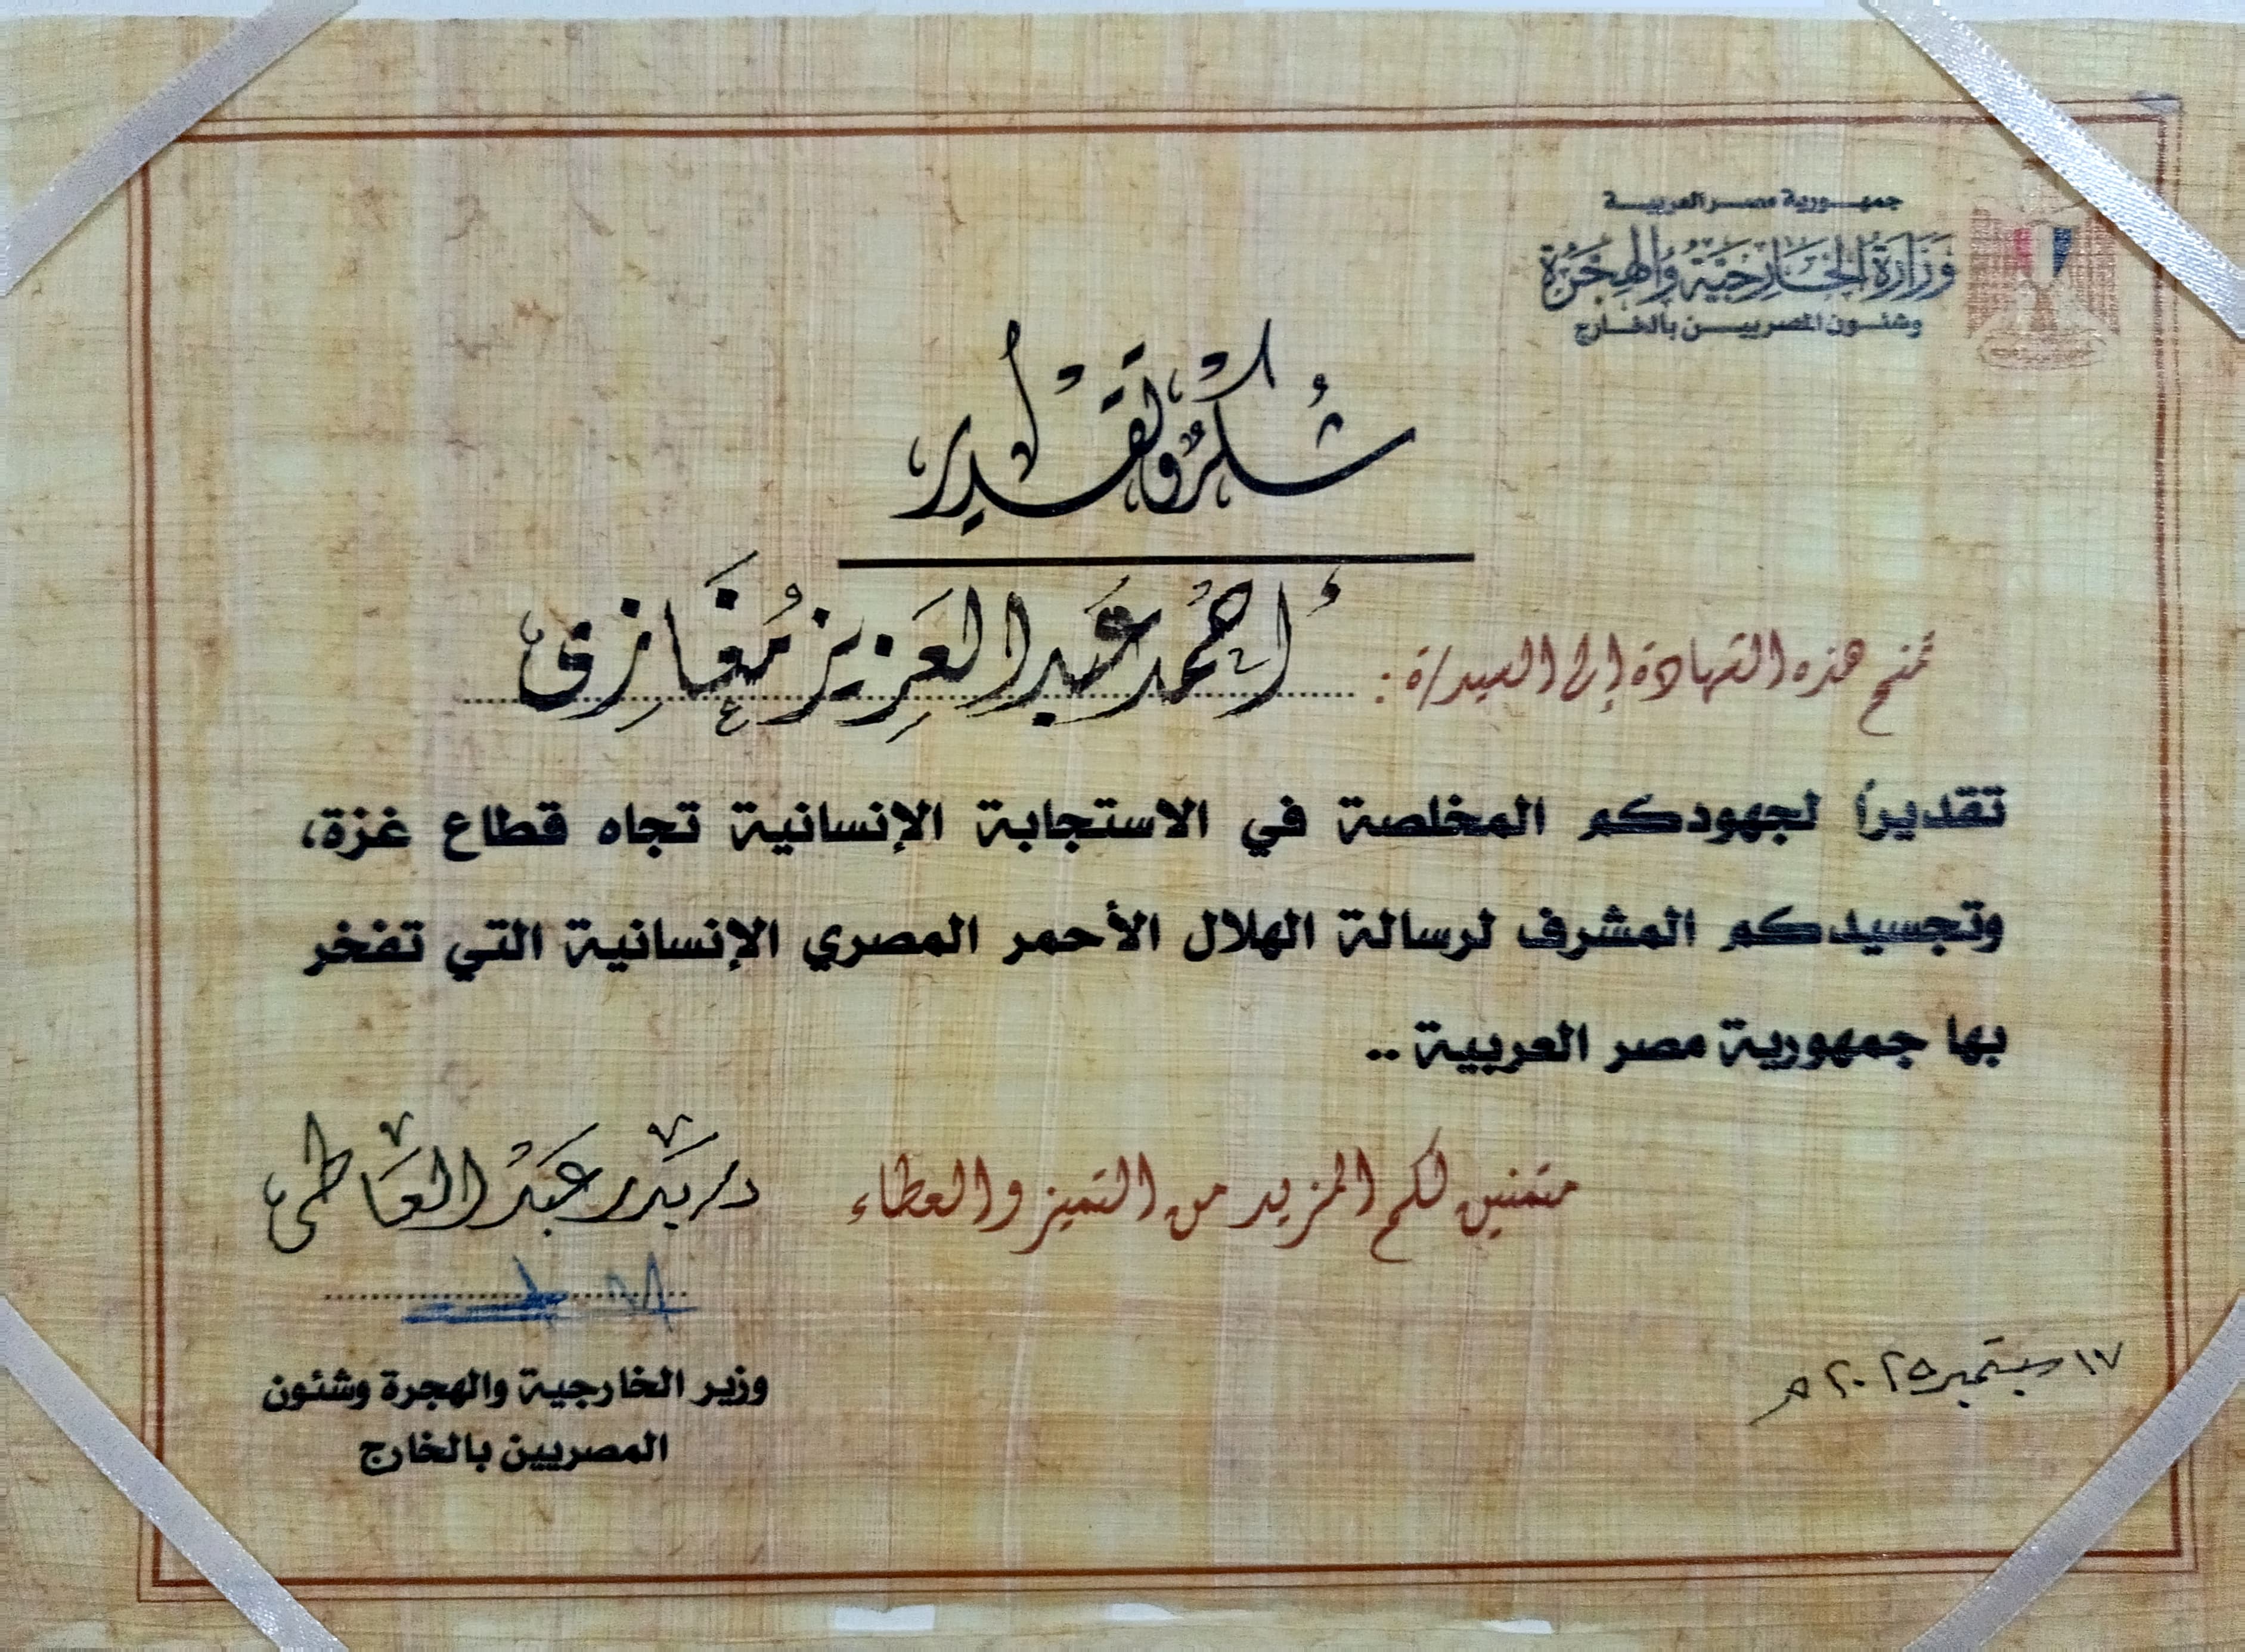 جمهورية مصر العربية
وزارة الخارجية والهجرة
وشئون المصريين بالخارج
شكر وتقدير
تمنح هذه الشهادة إلى السيد/ة: أحمد عبد العزيز مغازى
تقديراً لجهودكم المخلصة في الاستجابة الإنسانية تجاه قطاع غزة،
وتجسيدكم المشرف لرسالة الهلال الأحمر المصري الإنسانية التي تفخر
بها جمهورية مصر العربية ..
متمنين لكم المزيد من التميز والعطاء
د/بدر عبد العاطى
وزير الخارجية والهجرة وشئون
المصريين بالخارج
١٧ سبتمبر ٢٠٢٥ م